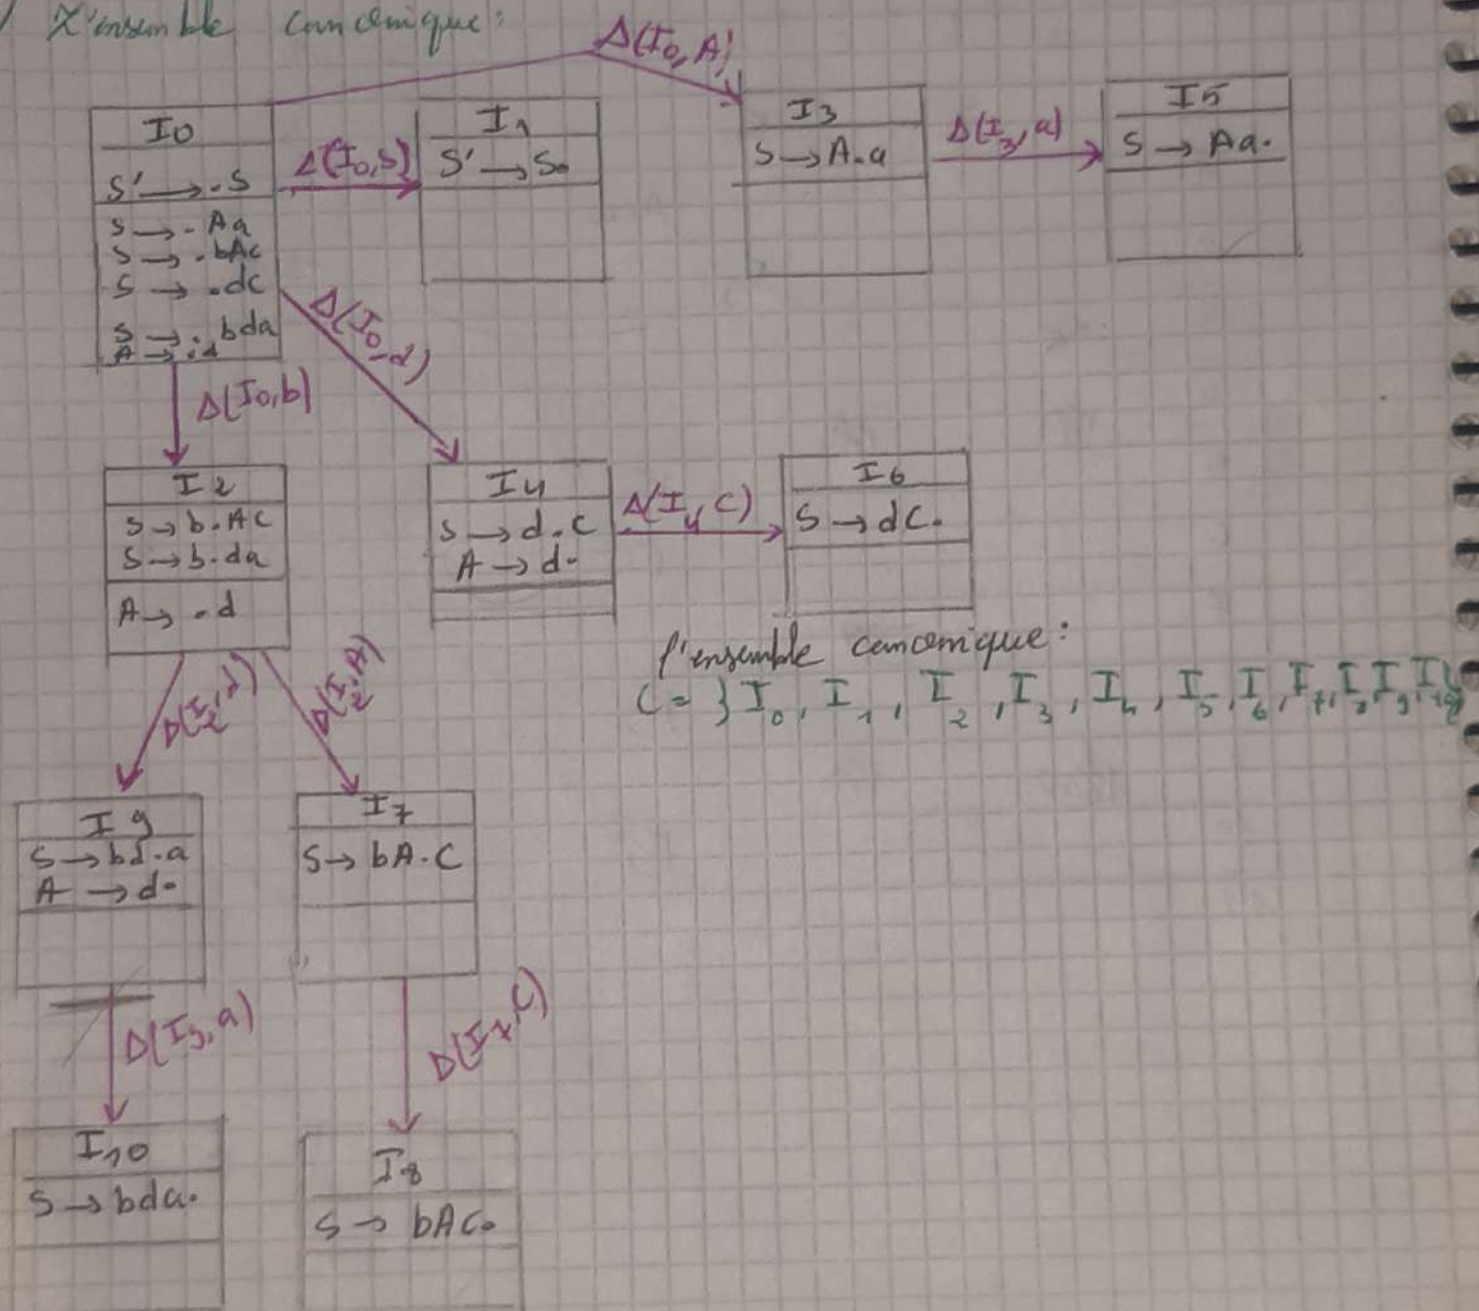 L'ensemble canonique :
Δ(I0, A)
I0
S' → .S
S → .Aa
S → .bAc
S → .dc
S → .bda
A → .d
Δ(I0,S)
I1
S' → S.
I3
S → A.a
Δ(I3,a)
I5
S → Aa.
Δ(I0,d)
Δ(I0,b)
I2
S → b.AC
S → b.da
A → .d
I4
S → d.C
A → d.
Δ(I4 C)
I6
S → dC.
l'ensemble canonique :
C = } I0, I1, I2, I3, I4, I5, I6, I7, I8 I9, I10}
Δ(I2,d)
Δ(I2,A)
I9
S → bd.a
A → d.
I7
S → bA.C
Δ(I9,a)
Δ(I7,C)
I10
S → bda.
I8
S → bAC.